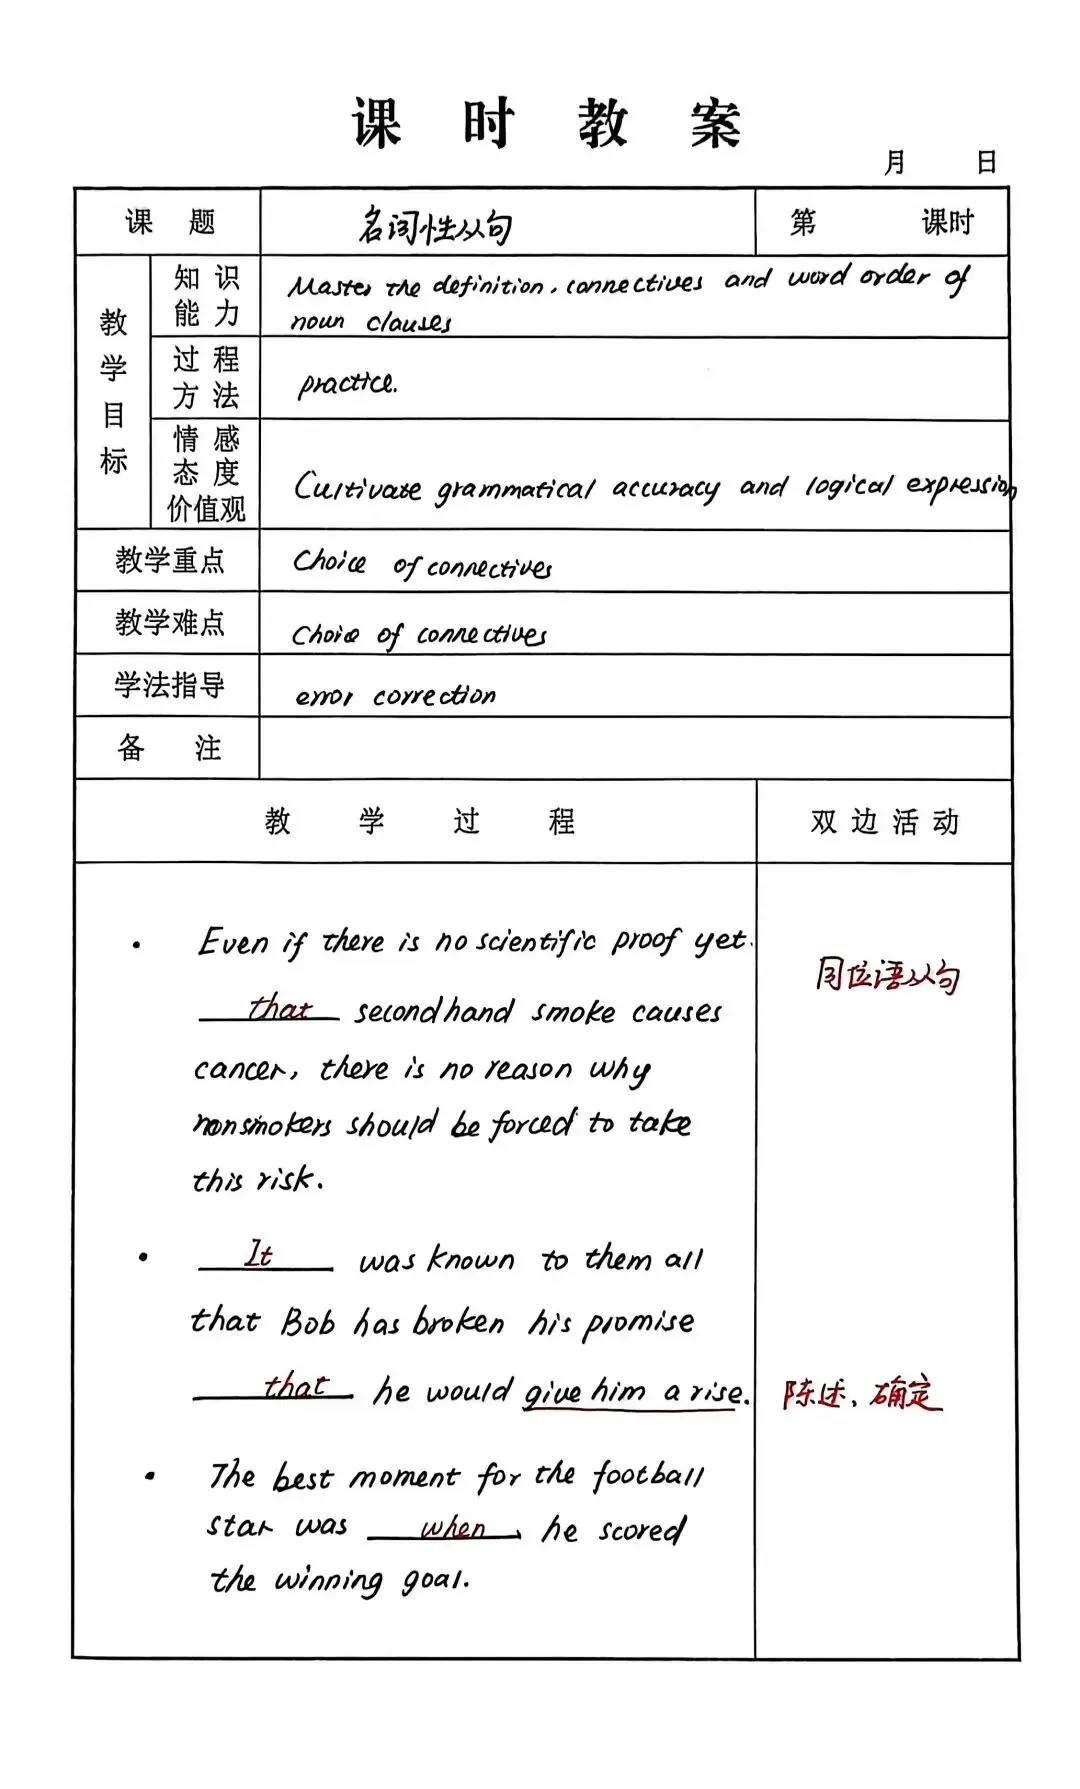 课 时 教 案
月 日
课 题 名词性从句 第 课时
教学目标
知识能力 Master the definition, connectives and word order of
noun clauses
过程方法 practice.
情感态度价值观 Cultivate grammatical accuracy and logical expression
教学重点 Choice of connectives
教学难点 Choice of connectives
学法指导 error correction
备 注
教 学 过 程 双边活动
• Even if there is no scientific proof yet.
that secondhand smoke causes
同位语从句
cancer, there is no reason why
nonsmokers should be forced to take
this risk.
• It was known to them all
that Bob has broken his promise
that he would give him a rise. 陈述、确定
• The best moment for the football
star was when he scored
the winning goal.